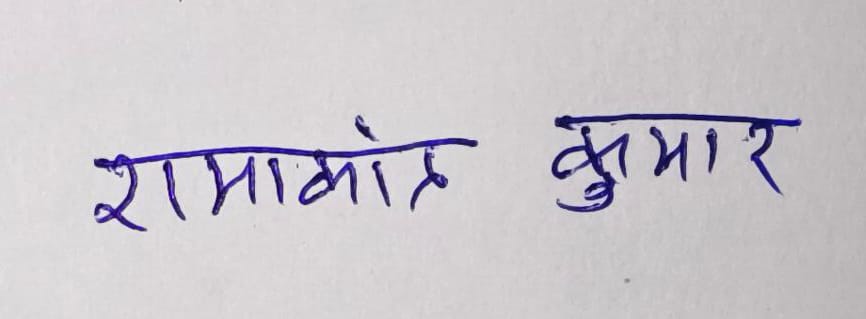 रामाकांत कुमार